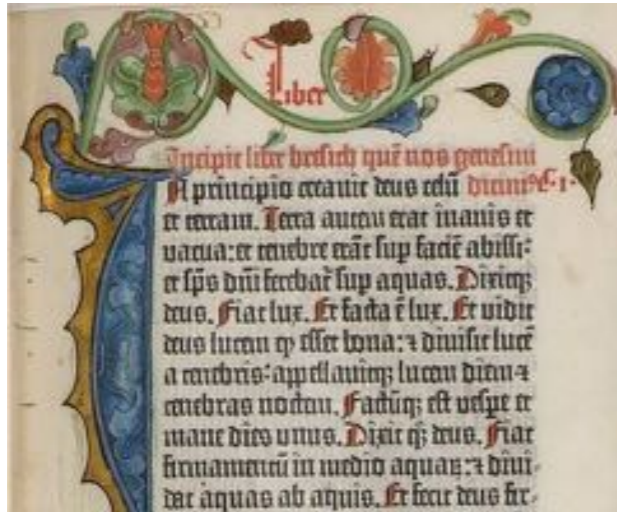 Liber
Incipit liber bresich quē nos genesim
A principio creavit deus celū dicimꝰ c. 1.
et terram. Terra autem erat inanis et
vacua: et tenebre erāt sup faciē abissi:
et sp̄s dn̄i ferebat̄ sup aquas. Dixitqꝫ
deus. Fiat lux. Et facta ē lux. Et vidit
deus lucem ꝙ esset bona: ⁊ divisit lucē
a tenebris: appellavitqꝫ lucem diem ⁊
tenebras noctem. Factūqꝫ est vespe et
mane dies unus. Dixit qꝫ deus. Fiat
firmamentū in medio aquaꝝ: ⁊ divi-
dat aquas ab aquis. Et fecit deus fir-